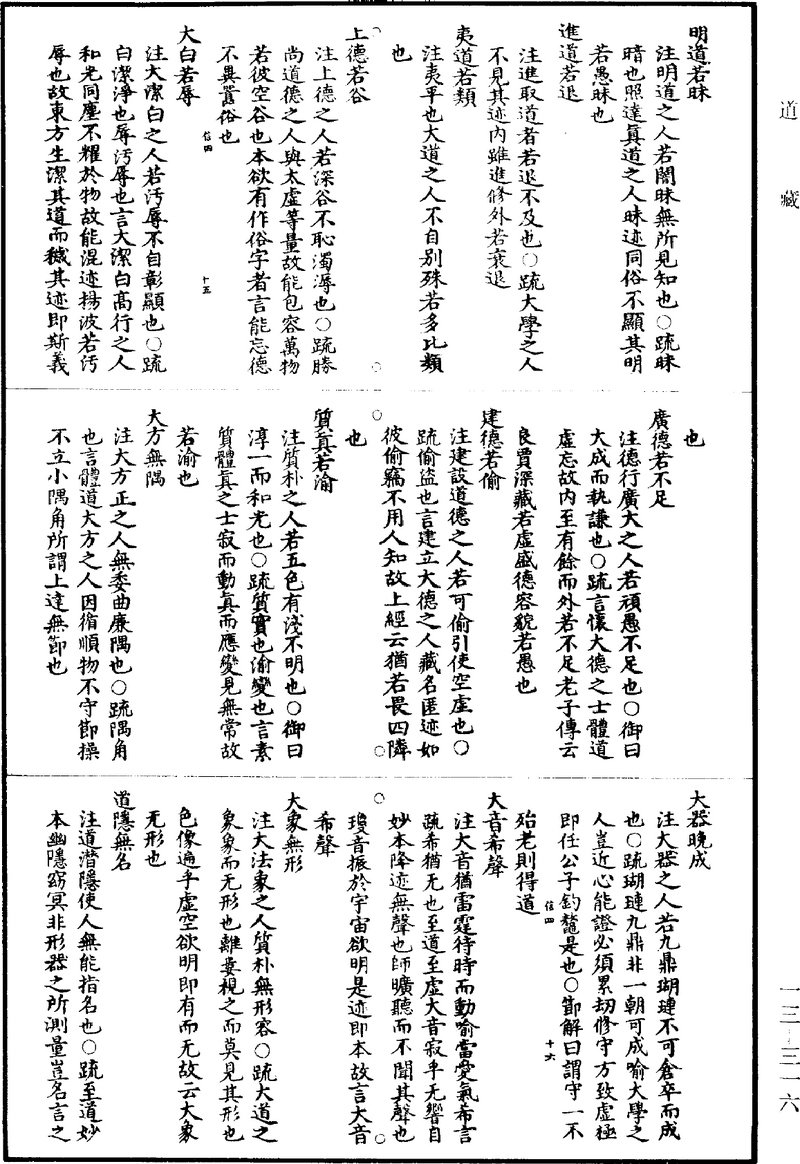 道藏
明道若昧
注明道之人若闇昧無所見知也○䟽昧
暗也照達真道之人昧迹同俗不顯其明
若愚昧也
進道若退
注進取道者若退不及也○䟽大學之人
不見其迹内雖進修外若衰退
夷道若類
注夷平也大道之人不自別殊若多比類
也
上德若谷
注上德之人若深谷不恥濁溽也○䟽勝
尚道德之人與太虛等量故能包容萬物
若彼空谷也本欲有作俗字者言能忘德
不異囂俗也
信四 十五
大白若辱
注大潔白之人若汚辱不自彰顯也○䟽
白潔淨也辱汚辱也言大潔白高行之人
和光同塵不耀於物故能混迹揚波若汚
辱也故東方生潔其道而穢其迹即斯義
也
廣德若不足
注德行廣大之人若頑愚不足也○御曰
大成而執謙也○䟽言懷大德之士體道
虛忘故内至有餘而外若不足老子傳云
良賈深藏若虛盛德容貌若愚也
建德若偷
注建設道德之人若可偷引使空虛也○
䟽偷盜也言建立大德之人藏名匿迹如
彼偷竊不用人知故上經云猶若畏四隣
也
質真若渝
注質朴之人若五色有淺不明也○御曰
淳一而和光也○䟽質實也渝變也言素
質體真之士寂而動真而應變見無常故
若渝也
大方無隅
注大方正之人無委曲廉隅也○䟽隅角
也言體道大方之人因循順物不守節操
不立小隅角所謂上達無節也
大器晚成
注大器之人若九鼎瑚璉不可倉卒而成
也○䟽瑚璉九鼎非一朝可成喻大學之
人豈近心能證必須累劫修守方致虛極
即任公子釣鼇是也○節解曰謂守一不
殆老則得道
信四 十六
大音希聲
注大音猶雷霆待時而動喻當愛氣希言
䟽希猶无也至道至虛大音寂乎无響自
妙本降迹無聲也師曠聽而不聞其聲也
瓊音振於宇宙欲明是迹即本故言大音
希聲
大象無形
注大法象之人質朴無形容○䟽大道之
象象而无形也離婁視之而莫見其形也
色像遍乎虛空欲明即有而无故云大象
无形也
道隱無名
注道潛隱使人無能指名也○䟽至道妙
本幽隱窈冥非形器之所測量豈名言之
一三-三一六